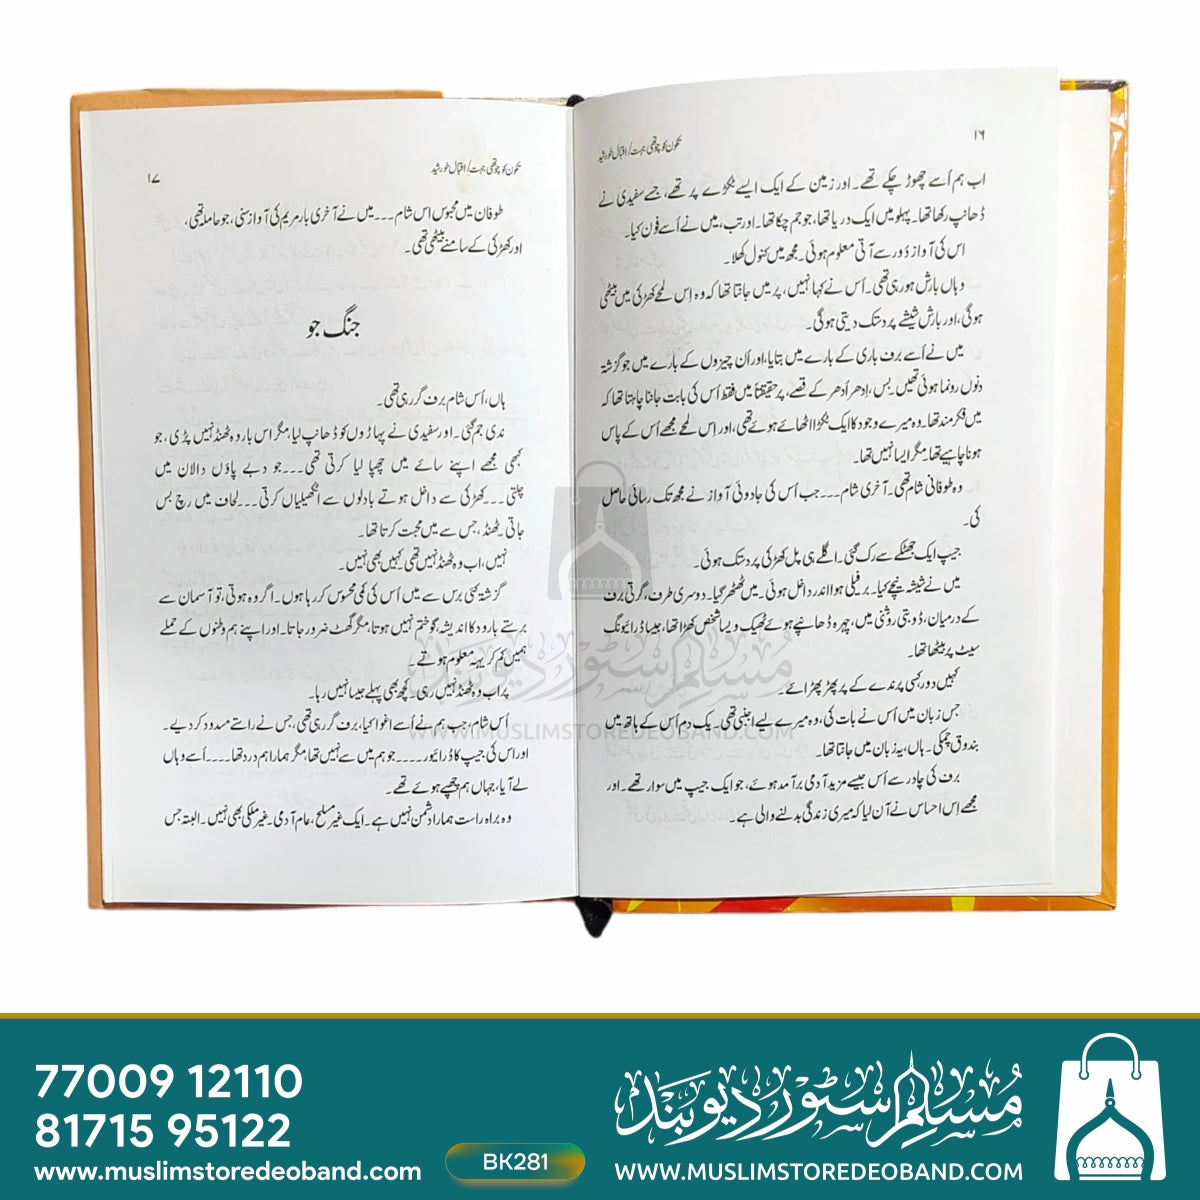 ۱۶
تکون کو چوتھی جہت / اقبال خورشید
اب ہم اُسے چھوڑ چکے تھے۔ اور زمین کے ایک ایسے ٹکڑے پر تھے، جسے سفیدی نے
ڈھانپ رکھا تھا۔ پہلو میں ایک دریا تھا، جو جم چکا تھا۔ اور تب، میں نے اُسے فون کیا۔
اس کی آواز دُور سے آتی معلوم ہوئی۔ مجھ میں کنول کھلا۔
وہاں بارش ہو رہی تھی۔ اُس نے کہا نہیں، پر میں جانتا تھا کہ وہ اِس لمحے کھڑکی میں بیٹھی
ہوگی، اور بارش شیشے پر دستک دیتی ہوگی۔
میں نے اُسے برف باری کے بارے میں بتایا، اور اُن چیزوں کے بارے میں جو گزشتہ
دنوں رونما ہوئی تھیں۔ بس، اِدھر اُدھر کے قصے، پر حقیقتاً میں فقط اُس کی بابت جاننا چاہتا تھا کہ
میں فکرمند تھا۔ وہ میرے وجود کا ایک ٹکڑا اٹھائے ہوئے تھی، اور اِس لمحے مجھے اُس کے پاس
ہونا چاہیے تھا مگر ایسا نہیں تھا۔
وہ طوفانی شام تھی۔ آخری شام۔۔۔ جب اُس کی جادوئی آواز نے مجھ تک رسائی حاصل
کی۔
جیپ ایک جھٹکے سے رک گئی۔ اگلے ہی پل کھڑکی پر دستک ہوئی۔
میں نے شیشہ نیچے کیا۔ برفیلی ہوا اندر داخل ہوئی۔ میں ٹھٹھر گیا۔ دوسری طرف، گرتی برف
کے درمیان، ڈوبتی روشنی میں، چہرہ ڈھانپے ہوئے ٹھیک ویسا شخص کھڑا تھا، جیسا ڈرائیونگ
سیٹ پر بیٹھا تھا۔
کہیں دور کسی پرندے کے پر پھڑپھڑائے۔
جس زبان میں اُس نے بات کی، وہ میرے لیے اجنبی تھی۔ یک دم اُس کے ہاتھ میں
بندوق چمکی۔ ہاں، یہ زبان میں جانتا تھا۔
برف کی چادر سے اُس جیسے مزید آدمی برآمد ہوئے، جو ایک جیپ میں سوار تھے۔ اور
مجھے اِس احساس نے آن لیا کہ میری زندگی بدلنے والی ہے۔
تکون کو چوتھی جہت / اقبال خورشید
۱۷
طوفان میں محبوس اس شام۔۔۔ میں نے آخری بار مریم کی آواز سنی، جو حاملہ تھی،
اور کھڑکی کے سامنے بیٹھی تھی۔
جنگ جو
ہاں، اُس شام برف گر رہی تھی۔
ندی جم گئی۔ اور سفیدی نے پہاڑوں کو ڈھانپ لیا، مگر اس بار وہ ٹھنڈ نہیں پڑی، جو
کبھی مجھے اپنے سائے میں چھپا لیا کرتی تھی۔۔۔ جو دبے پاؤں دالان میں
چلتی۔۔۔ کھڑکی سے داخل ہوتے بادلوں سے اٹھکھیلیاں کرتی۔۔۔ لحاف میں رچ بس
جاتی۔ ٹھنڈ، جس سے میں محبت کرتا تھا۔
نہیں، اب وہ ٹھنڈ نہیں تھی۔ کہیں بھی نہیں۔
گزشتہ کئی برس سے میں اُس کی کمی محسوس کر رہا ہوں۔ اگر وہ ہوتی، تو آسمان سے
برستے بارود کا اندیشہ، گو ختم نہیں ہوتا، مگر گھٹ ضرور جاتا۔ اور اپنے ہم وطنوں کے حملے
ہمیں کم کریہہ معلوم ہوتے۔
پر اب وہ ٹھنڈ نہیں رہی۔ کچھ بھی پہلے جیسا نہیں رہا۔
اُس شام، جب ہم نے اُسے اغوا کیا، برف گر رہی تھی، جس نے راستے مسدود کر دیے۔
اور اس کی جیپ کا ڈرائیور۔۔۔۔ جو ہم میں سے نہیں تھا، مگر ہمارا ہم درد تھا۔۔۔۔ اُسے وہاں
لے آیا، جہاں ہم چھپے ہوئے تھے۔
وہ براہ راست ہمارا دشمن نہیں ہے۔ ایک غیر مسلح، عام آدمی۔ غیر ملکی بھی نہیں۔ البتہ جس
مُسلم سٹور دیوبند
WWW.MUSLIMSTOREDEOBAND.COM
77009 12110
81715 95122
www.muslimstoredeoband.com
BK281
مُسلم سٹور دیوبند
WWW.MUSLIMSTOREDEOBAND.COM